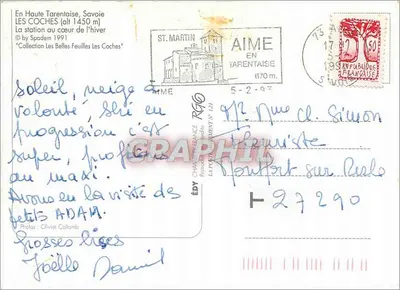 En Haute Tarentaise, Savoie
LES COCHES (alt 1450 m)
La station au cœur de l'hiver
© by Spadem 1991
"Collection Les Belles Feuilles Les Coches"
Soleil, neige à
volonté, ski en
progression c'est
super, profitons
au maxi.
Avons eu la visite des
petits ADAM.
Grosses bises
Joëlle Daniel
Photos : Christ Collomb
EDY
ST. MARTIN
AIME
EN
TARENTAISE
670 m.
5-2-
RÉPUBLIQUE
FRANÇAISE
2,50
GRAPHIL
Mr Mme Cl. Simon
fleuriste
Montfort sur Risle
27290